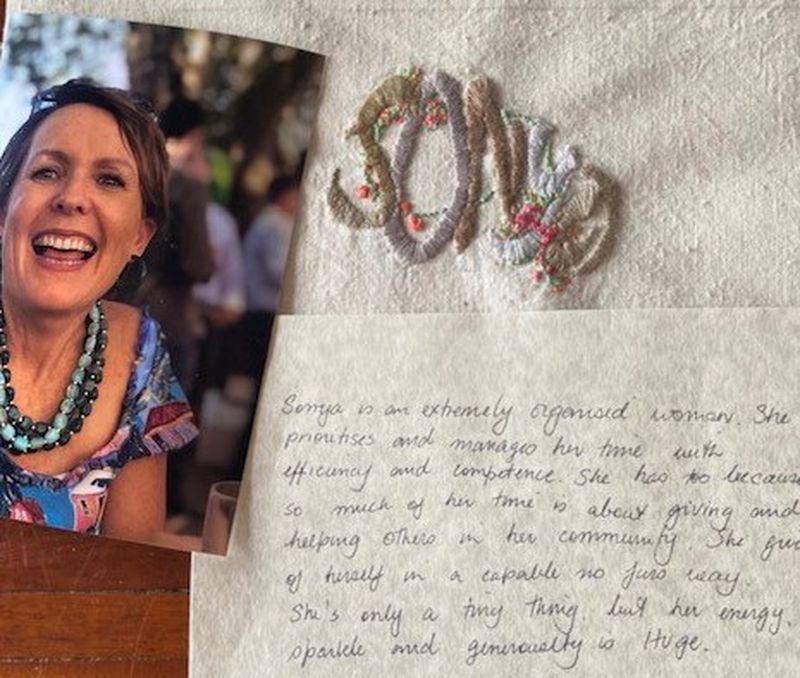 SONya
Sonya is an extremely organised woman. She
prioritises and manages her time with
efficiency and competence. She has to because
so much of her time is about giving and
helping others in her community. She
of herself in a capable no fuss way.
She's only a tiny thing, but her energy,
sparkle and generousity is Huge.